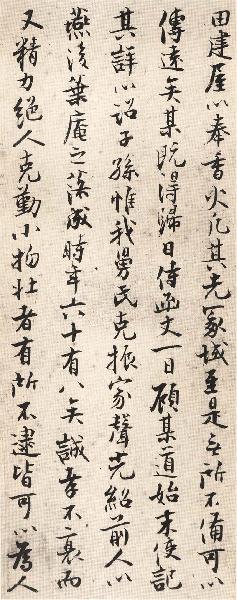 田建屋以奉香火凡其先冢域至是無所不備可以
傳遠矣某既得歸日侍函丈一日顧某道始末使記
其詳以詔子孫惟我曼民克振家聲光紹前人以
燕後葉庵之落成時年六十有八矣誠幸不衰而
又精力絕人克勤小物壯者有所不逮皆可以為人